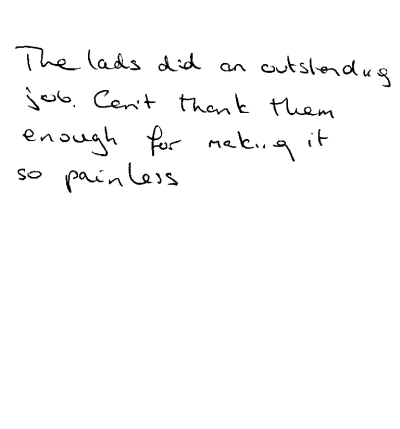 The lads did an outstanding
job. Can't thank them
enough for making it
so painless